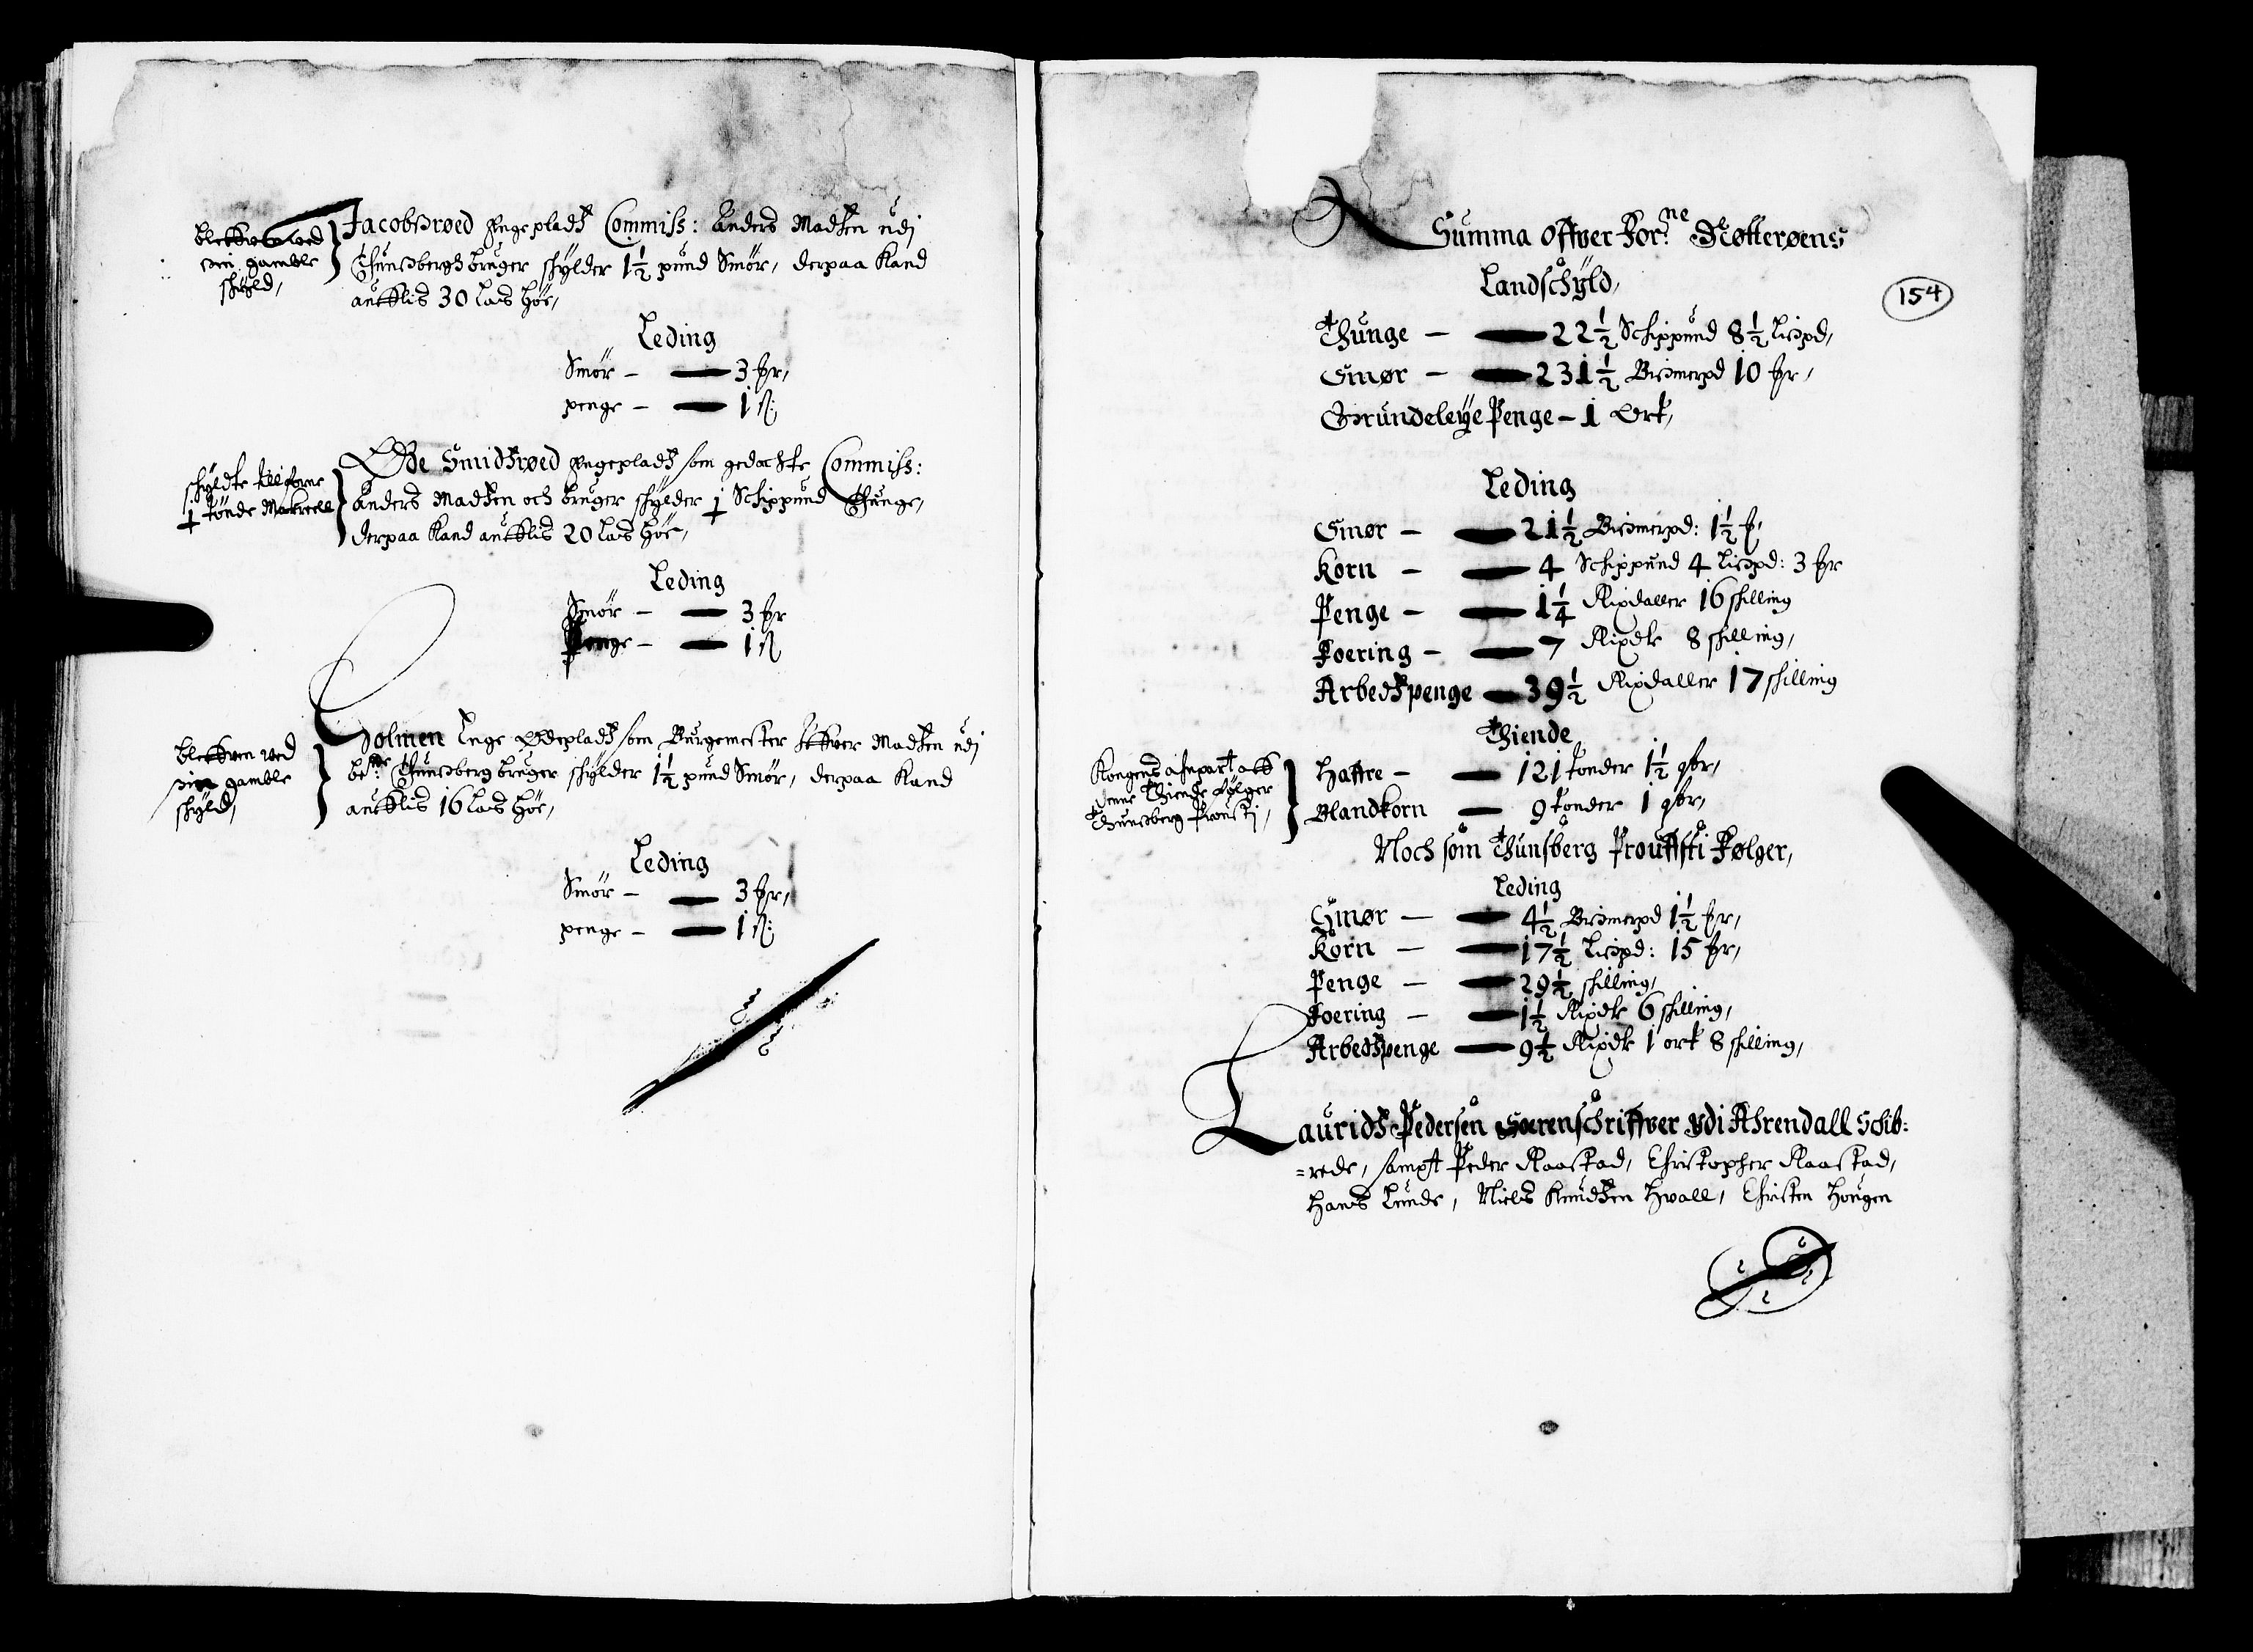 bleffwen wed
sin gamble
schyld,
Jacobsrøed Engepladtz Commiss: Anders Madtzen udj
Thunsbergh bruger schylder 1½ pund Smör, derpaa kand
aufflis 30 Lass höe,
Leding
Smör — 3 ₶r,
penge — 1 ß
schyldte tilforne
½ tönde Makrell
Øde Smidtzrøed Engepladtz som gedachte Commiss:
Anders Madtzen och bruger schylder ½ Schippund Thunge,
derpaa kand aufflis 20 Lass höe,
Leding
Smör — 3 ₶r
Penge — 1 ß
bleffwen ved
sin gamble
schyld,
Holmen Enge Ødepladtz som Burgemester Madtzen udj
be^te: Thunsberg bruger schylder 1½ pund Smör, derpaa kand
aufflis 16 Lass höe,
Leding
Smör — 3 ₶r,
penge — 1 ß
Summa offver For:^ne Nøtterøens
Landschyld,
154
Thunge — 22½ Schippund 8½ Lispd,
Smør — 231½ Bismerpd 10 ₶r,
Grundeleye Penge — 1 Ort,
Leding
Smør — 21½ Bismerpd: 1½ ₶,
Korn — 4 Schippund 4 Lispd: 3 ₶r
Penge — 1¼ Rixdaller 16 schilling
Foering — 7 Rixdlr 8 schilling,
Arbedtzpenge — 39½ Rixdaller 17 schilling
Thiende
Kongens anpart aff
denne Thiende følger
Thunsberg Prousti,
Haffre — 121 tonder 1½ qtr,
Blandkorn — 9 tonder 1 qtr,
Noch som Thunsberg Prouffsti Følger,
Leding
Smør — 4½ Bismerpd 1½ ₶r,
Korn — 17½ Lispd: 15 ₶r,
Penge — 29½ schilling,
Foering — 1½ Rixdlr 6 schilling,
Arbedtzpenge — 9½ Rixdlr 1 ort 8 schilling,
Lauridtz Pedersen Sorenschriffver Vdi Ahrendall Schib:
=rede, sampt Peder Raastad, Christopher Raastad,
Hans Lunde, Niels Knudtzen Hvall, Christen Hougen